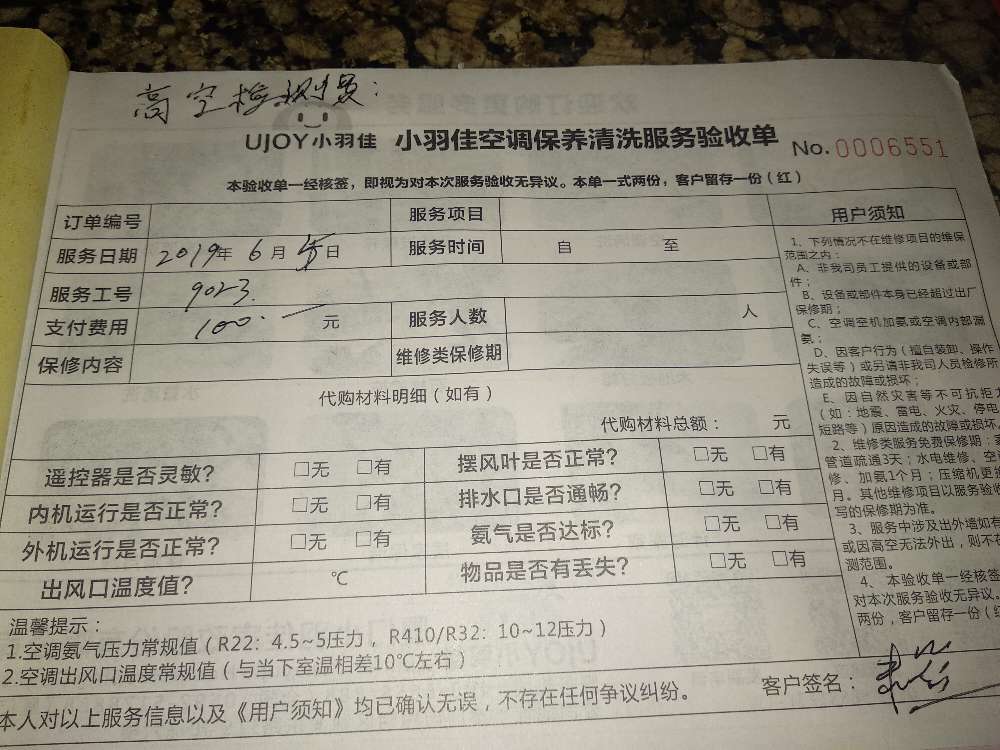 高空检测费：
UJOY小羽佳 小羽佳空调保养清洗服务验收单 No. 0006551
本验收单一经核签，即视为对本次服务验收无异议。本单一式两份，客户留存一份（红）
订单编号 服务项目
服务日期 2019年 6月 5日 服务时间 自 至
服务工号 9023.
支付费用 100.— 元 服务人数 人
保修内容 维修类保修期
代购材料明细（如有）
代购材料总额： 元
遥控器是否灵敏？ □无 □有 摆风叶是否正常？ □无 □有
内机运行是否正常？ □无 □有 排水口是否通畅？ □无 □有
外机运行是否正常？ □无 □有 氨气是否达标？ □无 □有
出风口温度值？ ℃ 物品是否有丢失？ □无 □有
用户须知
1、下列情况不在维修项目的维保
范围之内：
A、非我司员工提供的设备或部
件；
B、设备或部件本身已经超过出厂
保修期；
C、空调空机加氨或空调内部漏
氨；
D、因客户行为（擅自装卸、操作
失误等）或另请非我司人员检修所
造成的故障或损坏；
E、因自然灾害等不可抗拒
（如：地震、雷电、火灾、停电
短路等）原因造成的故障或损坏。
2、维修类服务免费保修期：
管道疏通3天；水电维修、空
修、加氨1个月；压缩机更
月。其他维修项目以服务验收
写的保修期为准。
3、服务中涉及出外墙如有
或因高空无法外出，则不在
测范围。
4、本验收单一经核签
对本次服务验收无异议。
两份，客户留存一份（
温馨提示：
1.空调氨气压力常规值（R22：4.5~5压力，R410/R32：10~12压力）
2.空调出风口温度常规值（与当下室温相差10℃左右）
客户签名：
本人对以上服务信息以及《用户须知》均已确认无误，不存在任何争议纠纷。